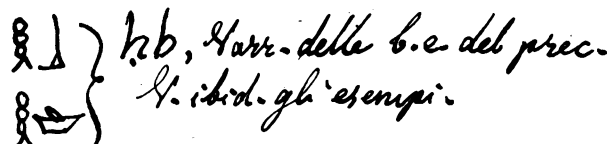 𓎛𓃀 } ḥb, Varr. delle b.e. del prec.
V. ibid. gli esempi.